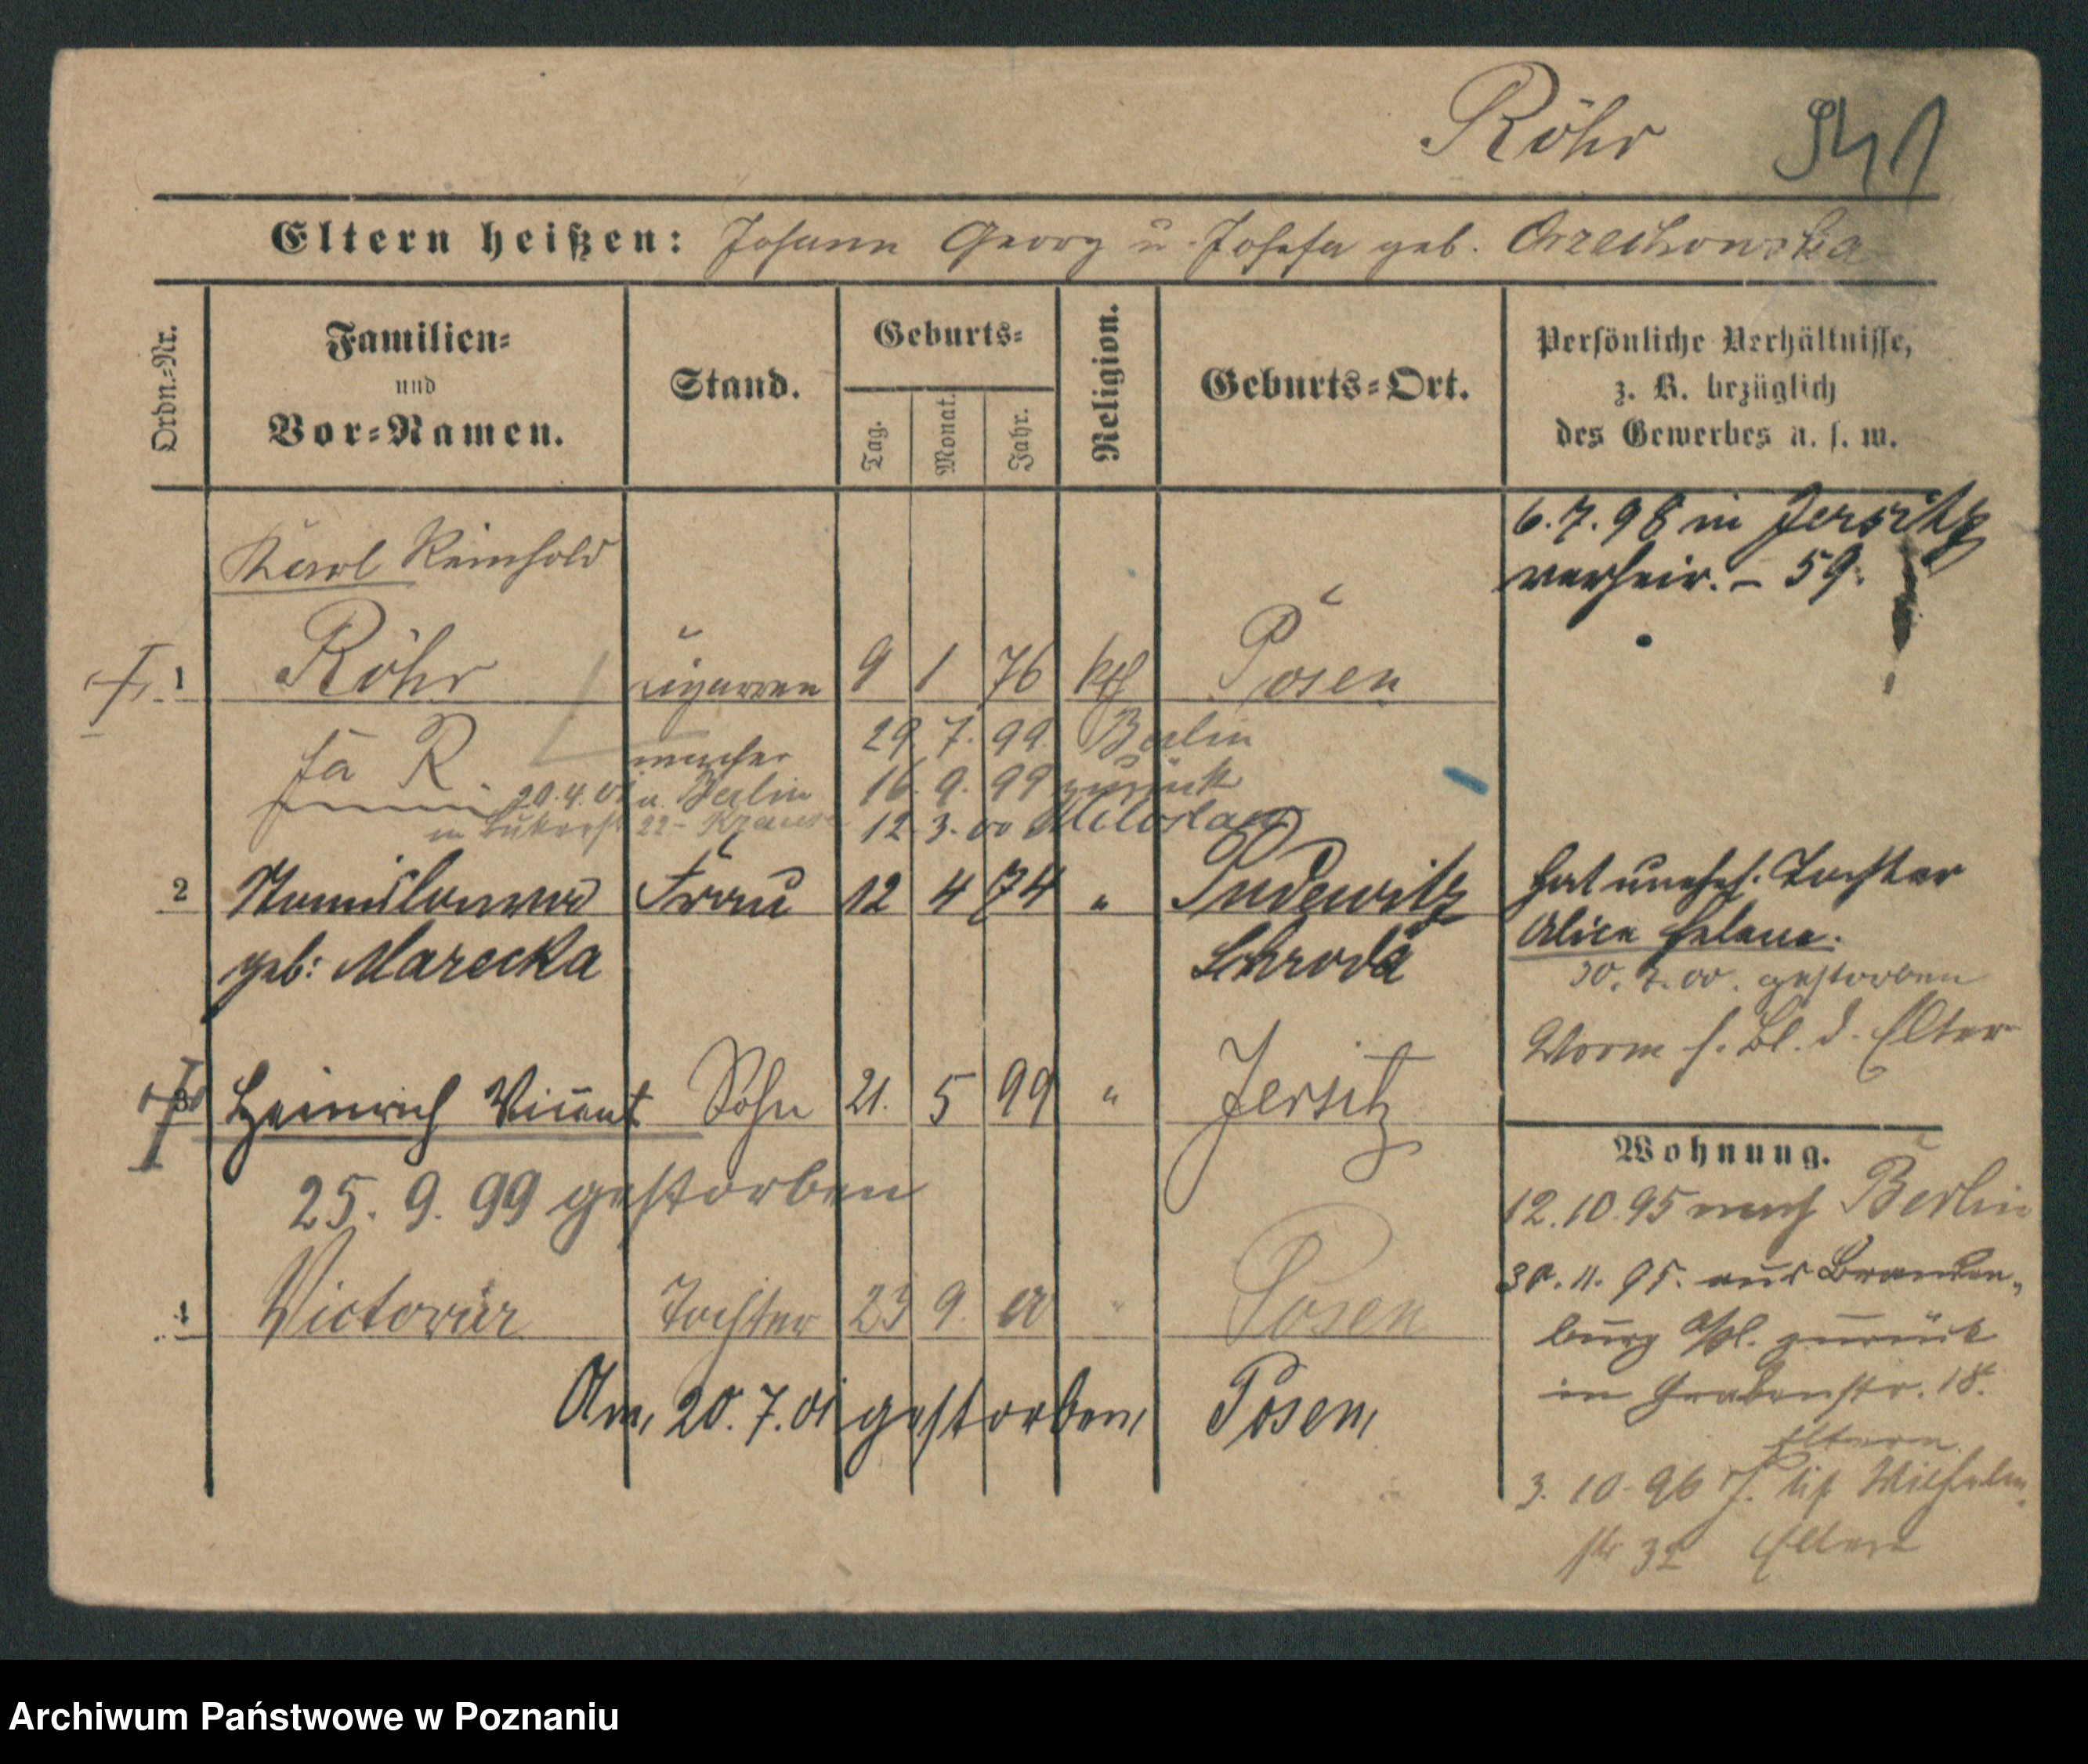 Röhr 541
Eltern heißen: Johann Georg u. Josefa geb. Orzechowska
Ordn.-Nr.
Familien-
und
Vor-Namen.
Stand.
Geburts-
Tag.
Monat.
Jahr.
Religion.
Geburts-Ort.
Persönliche Verhältnisse,
z. B. bezüglich
des Gewerbes u. s. w.
6.7.98 in Jersitz
verheir. - 59.
Karl Reinhold
1 Röhr Cigarren 9 1 76 kth Posen
R. macher 29 7. 99 Berlin
20.4.01 u. Berlin 16. 9. 99 zurück
in 22 12. 3. 00 Miloslaw
2 Stanislawa Frau 12 4 74 " Pudewitz
geb: Marecka Schroda
hat unehel. Tochter
Alice Helene.
30. 7. 00. gestorben
Worm s. Bl. d. Elter
3 Heinrich Vincent Sohn 21. 5 99 " Jersitz
25. 9. 99 gestorben
4 Victoria Tochter 23 9. 00 " Posen
Am 20. 7. 01 gestorben Posen
Wohnung.
12.10.95 nach Berlin
30. 11. 95. aus Branden-
burg a/H. zurück
in Grabenstr. 18.
Eltern
3. 10. 96 Wilhelm-
str 32 Eltern
Archiwum Państwowe w Poznaniu